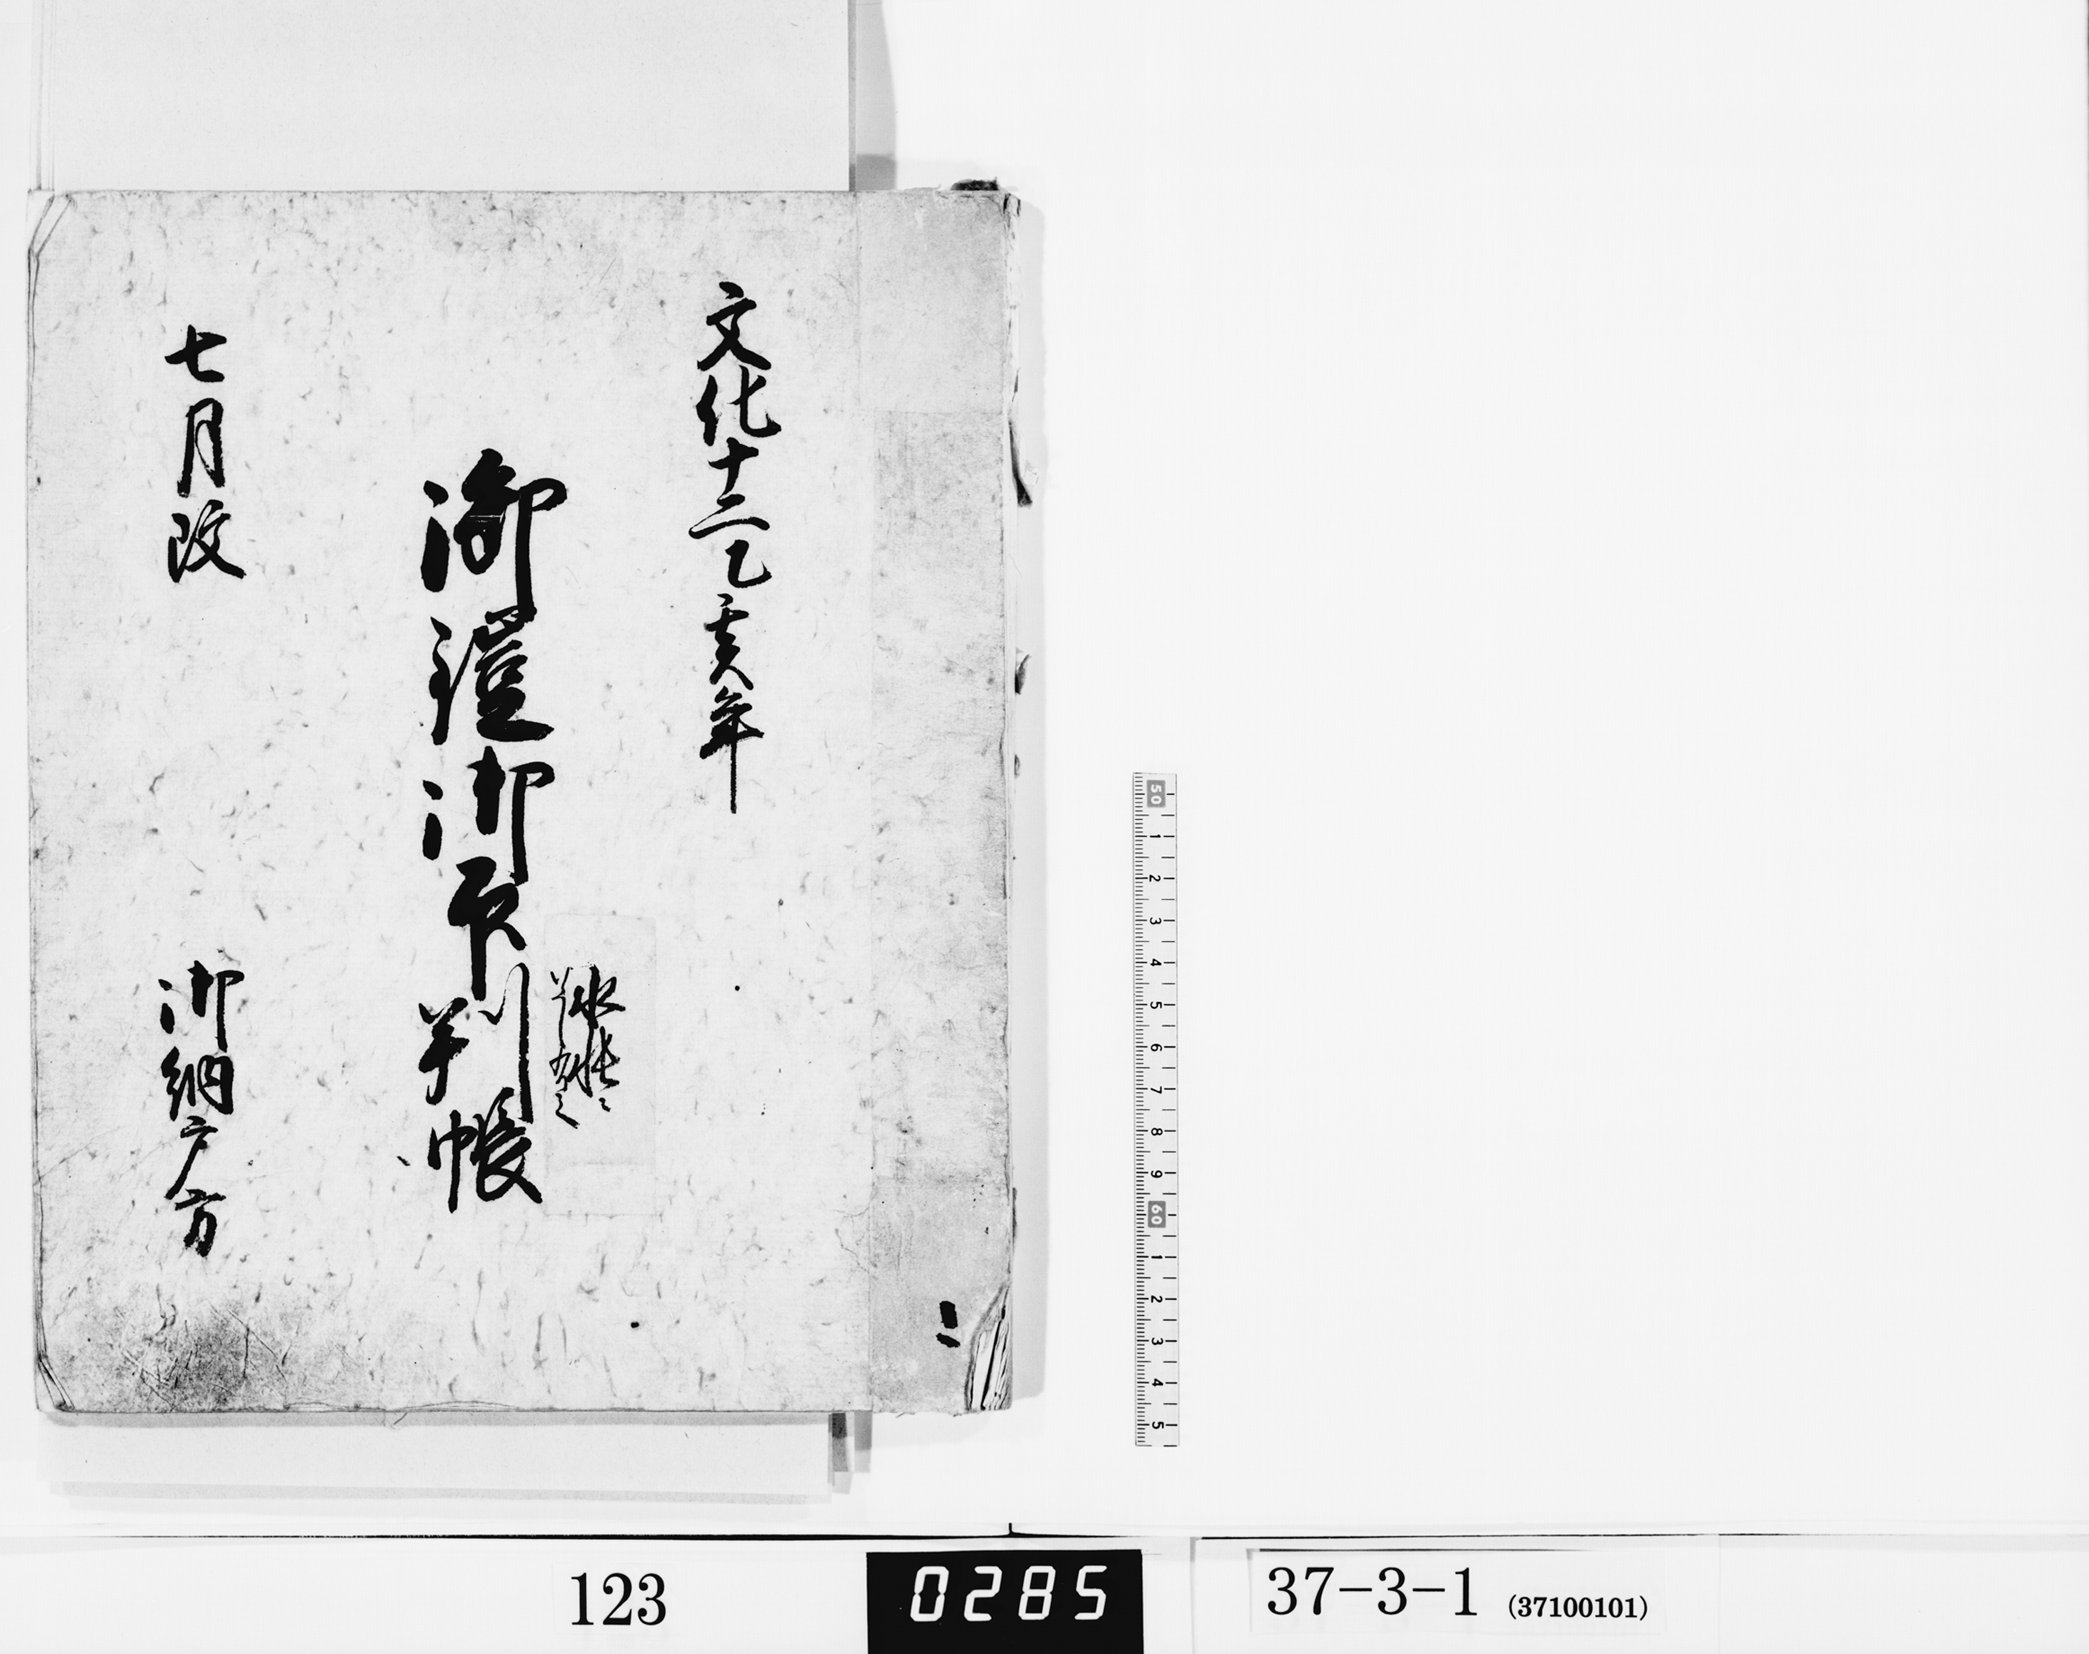 文化十二乙亥年
御鎧御召判帳
七月改
御納戸方
50
1
2
3
4
5
6
7
8
9
60
1
2
3
4
5
123
0285
37-3-1 (37100101)